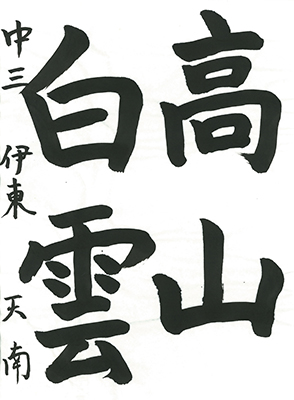 高山
白雲
中三 伊東 天南